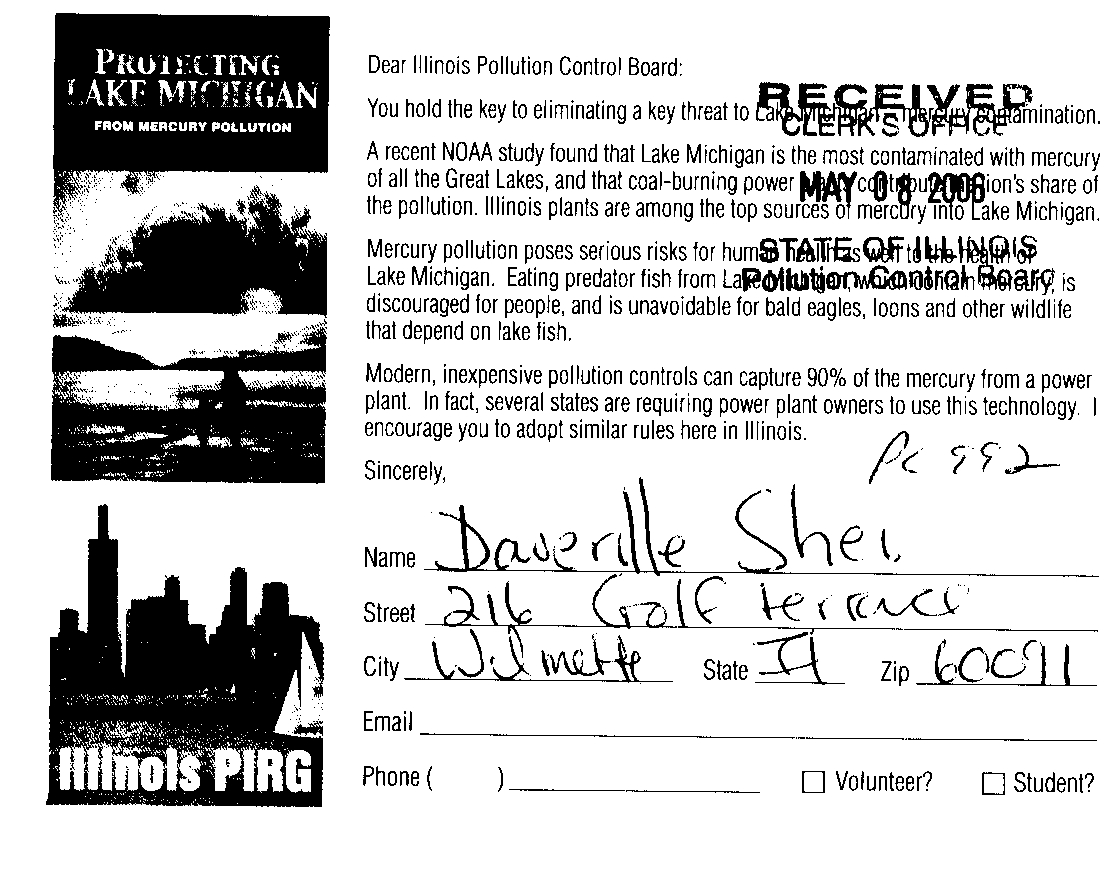 PROTECTING
LAKE MICHIGAN
FROM MERCURY POLLUTION
Illinois PIRG
Dear Illinois Pollution Control Board:
You hold the key to eliminating a key threat to Lake Michigan – mercury contamination.
RECEIVED
CLERK'S OFFICE
A recent NOAA study found that Lake Michigan is the most contaminated with mercury
of all the Great Lakes, and that coal-burning power contribute lion's share of
MAY 08 2006
the pollution. Illinois plants are among the top sources of mercury into Lake Michigan.
Mercury pollution poses serious risks for human health as well to the health of
STATE OF ILLINOIS
Lake Michigan. Eating predator fish from Lake Michigan, which contain mercury, is
Pollution Control Board
discouraged for people, and is unavoidable for bald eagles, loons and other wildlife
that depend on lake fish.
Modern, inexpensive pollution controls can capture 90% of the mercury from a power
plant. In fact, several states are requiring power plant owners to use this technology. I
encourage you to adopt similar rules here in Illinois.
PC 992
Sincerely,
Name
Street 216 Golf terrace
City Wilmette State Il Zip 60091
Email
Phone ( )
Volunteer? Student?